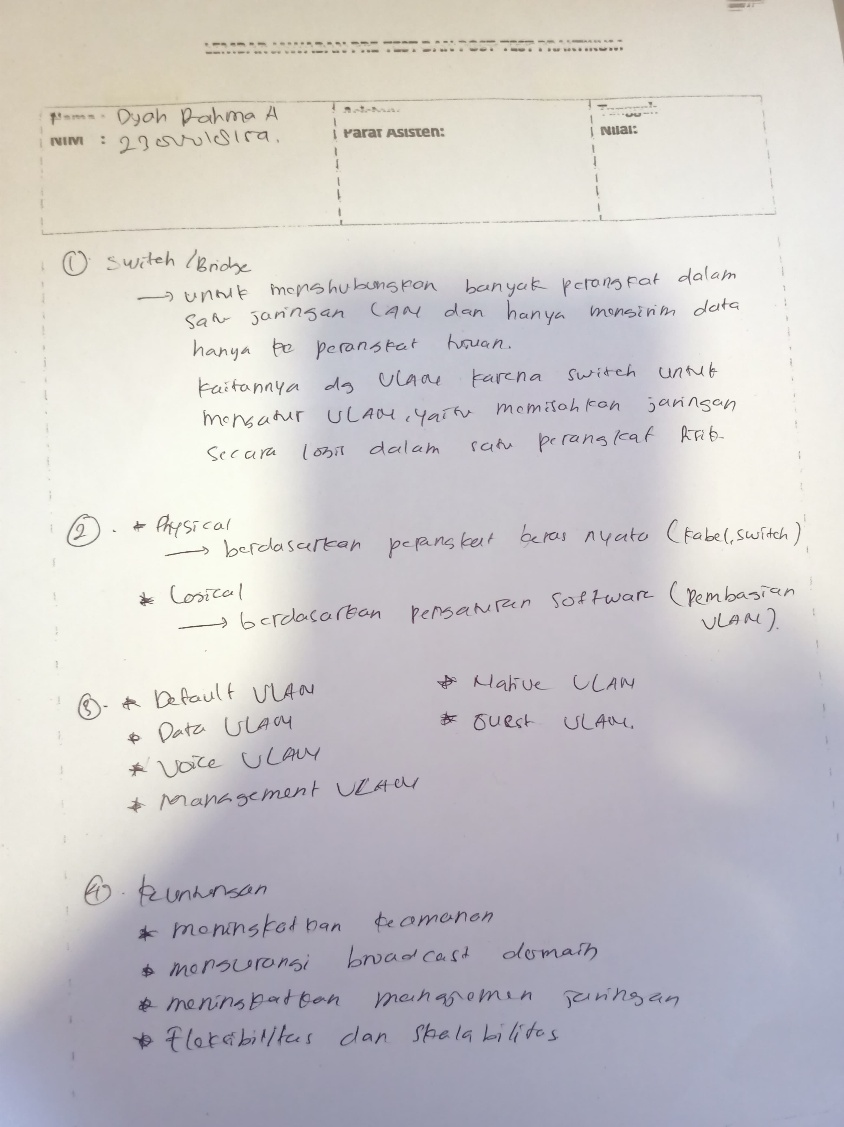 LEMBAR JAWABAN PRE TEST DAN POST TEST PRAKTIKUM
Nama : Dyah Rahma A
NIM :
Paraf Asisten:
Nilai:
① Switch / Bridge
→ untuk menghubungkan banyak perangkat dalam
satu jaringan LAN dan hanya mengirim data
hanya ke perangkat tujuan.
kaitannya dg VLAN karena switch untuk
mengatur VLAN, yaitu memisahkan jaringan
secara logik dalam satu perangkat fisik.
②. * Physical
→ berdasarkan perangkat keras nyata (kabel, switch)
* Logical
→ berdasarkan pengaturan software (pembagian
VLAN).
③. * Default VLAN
* Data VLAN
* Voice VLAN
* Management VLAN
* Native VLAN
* Guest VLAN.
④. keuntungan
* meningkatkan keamanan
* mengurangi broadcast domain
* meningkatkan manajemen jaringan
* Fleksibilitas dan skalabilitas